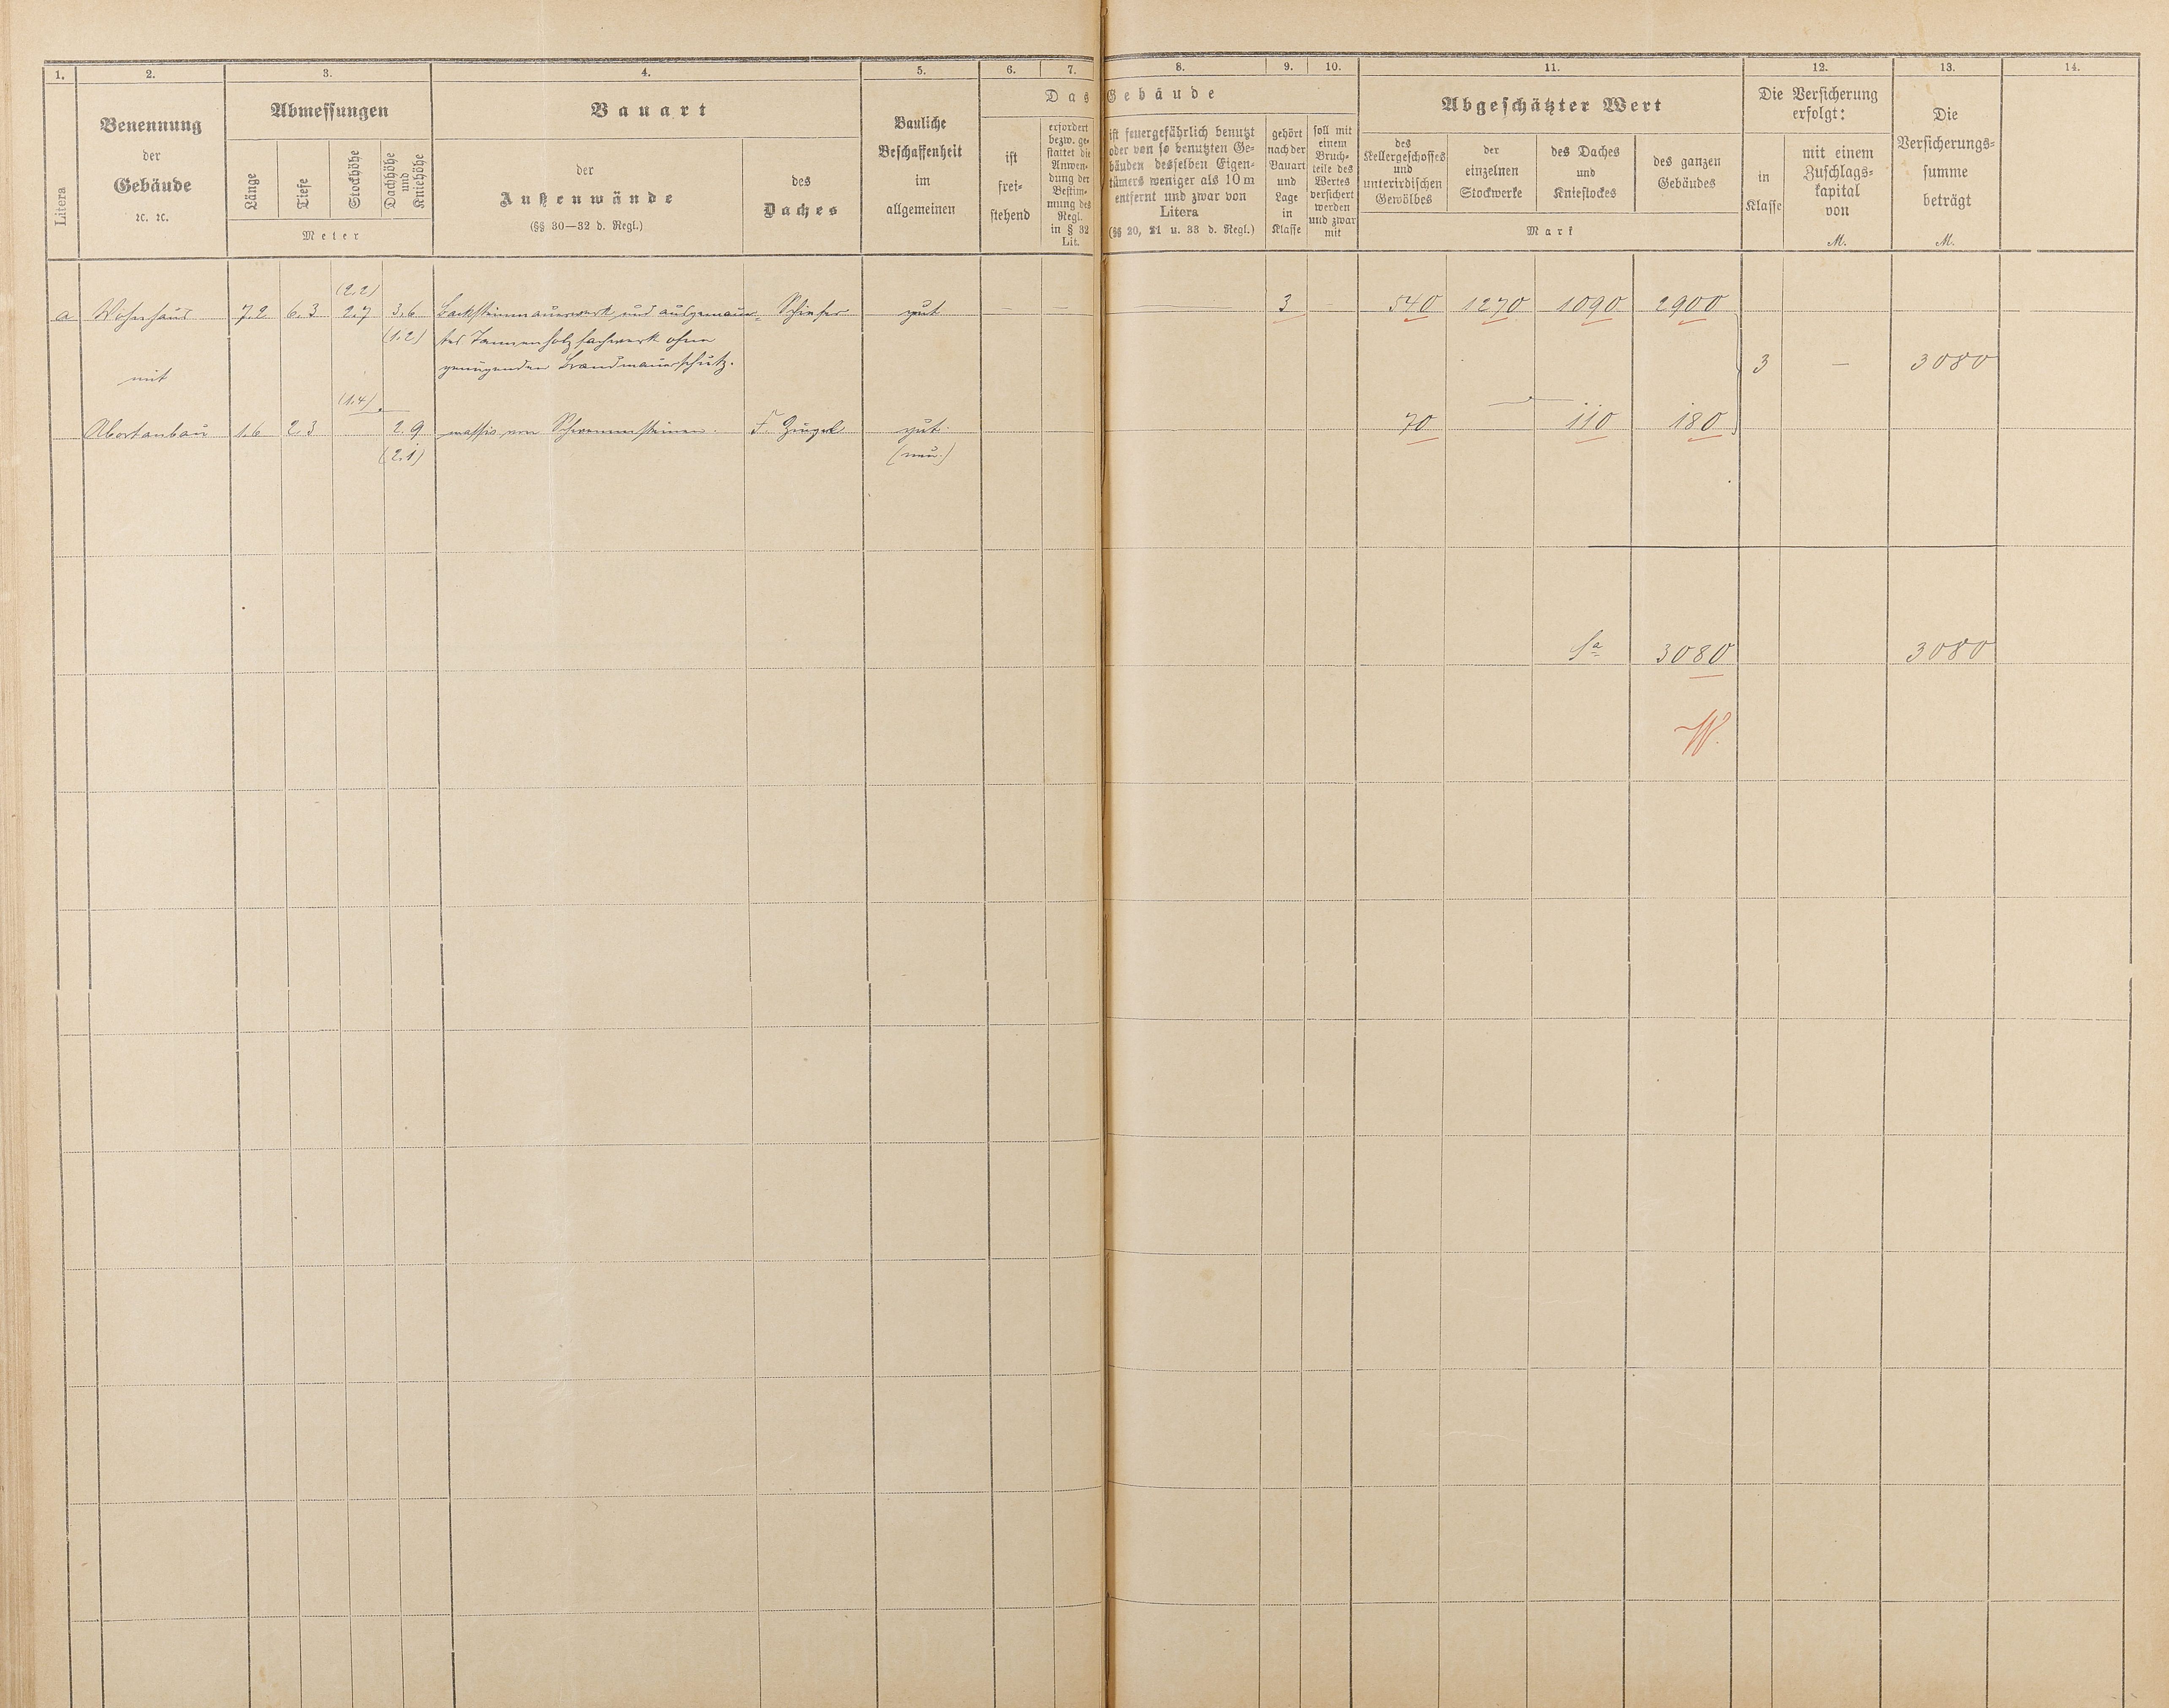 1. 2. 3. 4. 5. 6. 7. 8. 9. 10. 11. 12. 13. 14.
Litera
Benennung
der
Gebäude
ꝛc. ꝛc.
Abmessungen
Länge
Tiefe
Stockhöhe
Dachhöhe
und
Kniehöhe
Meter
Bauart
der
Außenwände
(§§ 30—32 d. Regl.)
des
Daches
Bauliche
Beschaffenheit
im
allgemeinen
Das Gebäude
ist
frei-
stehend
erfordert
bezw. ge-
stattet die
Anwen-
dung der
Bestim-
mung des
Regl.
in § 32
Lit.
ist feuergefährlich benutzt
oder von so benutzten Ge-
bäuden desselben Eigen-
tümers weniger als 10 m
entfernt und zwar von
Litera
(§§ 20, 21 u. 33 d. Regl.)
gehört
nach der
Bauart
und
Lage
in
Klasse
soll mit
einem
Bruch-
teile des
Wertes
versichert
werden
und zwar
mit
Abgeschätzter Wert
des
Kellergeschosses
und
unterirdischen
Gewölbes
der
einzelnen
Stockwerke
des Daches
und
Kniestockes
des ganzen
Gebäudes
Mark
Die Versicherung
erfolgt:
in
Klasse
mit einem
Zuschlags-
kapital
von
M.
Die
Versicherungs-
summe
beträgt
M.
(2.2)
a Wohnhaus 7.2 6.3 2.7 3.6 Backsteinmauerwerk und ausgemauer- Schiefer gut — — — 3 — 540 1270 1090 2900
(1.2) tes Tannenholzfachwerk ohne
genügenden Brandmauerschutz.
3 — 3080
mit
(1.4)
Abortanbau 1.6 2.3 2.9 massiv von Schwemmsteinen. F. Ziegel gut 70 — 110 180
(2.1) (neu.)
Sa 3080 3080